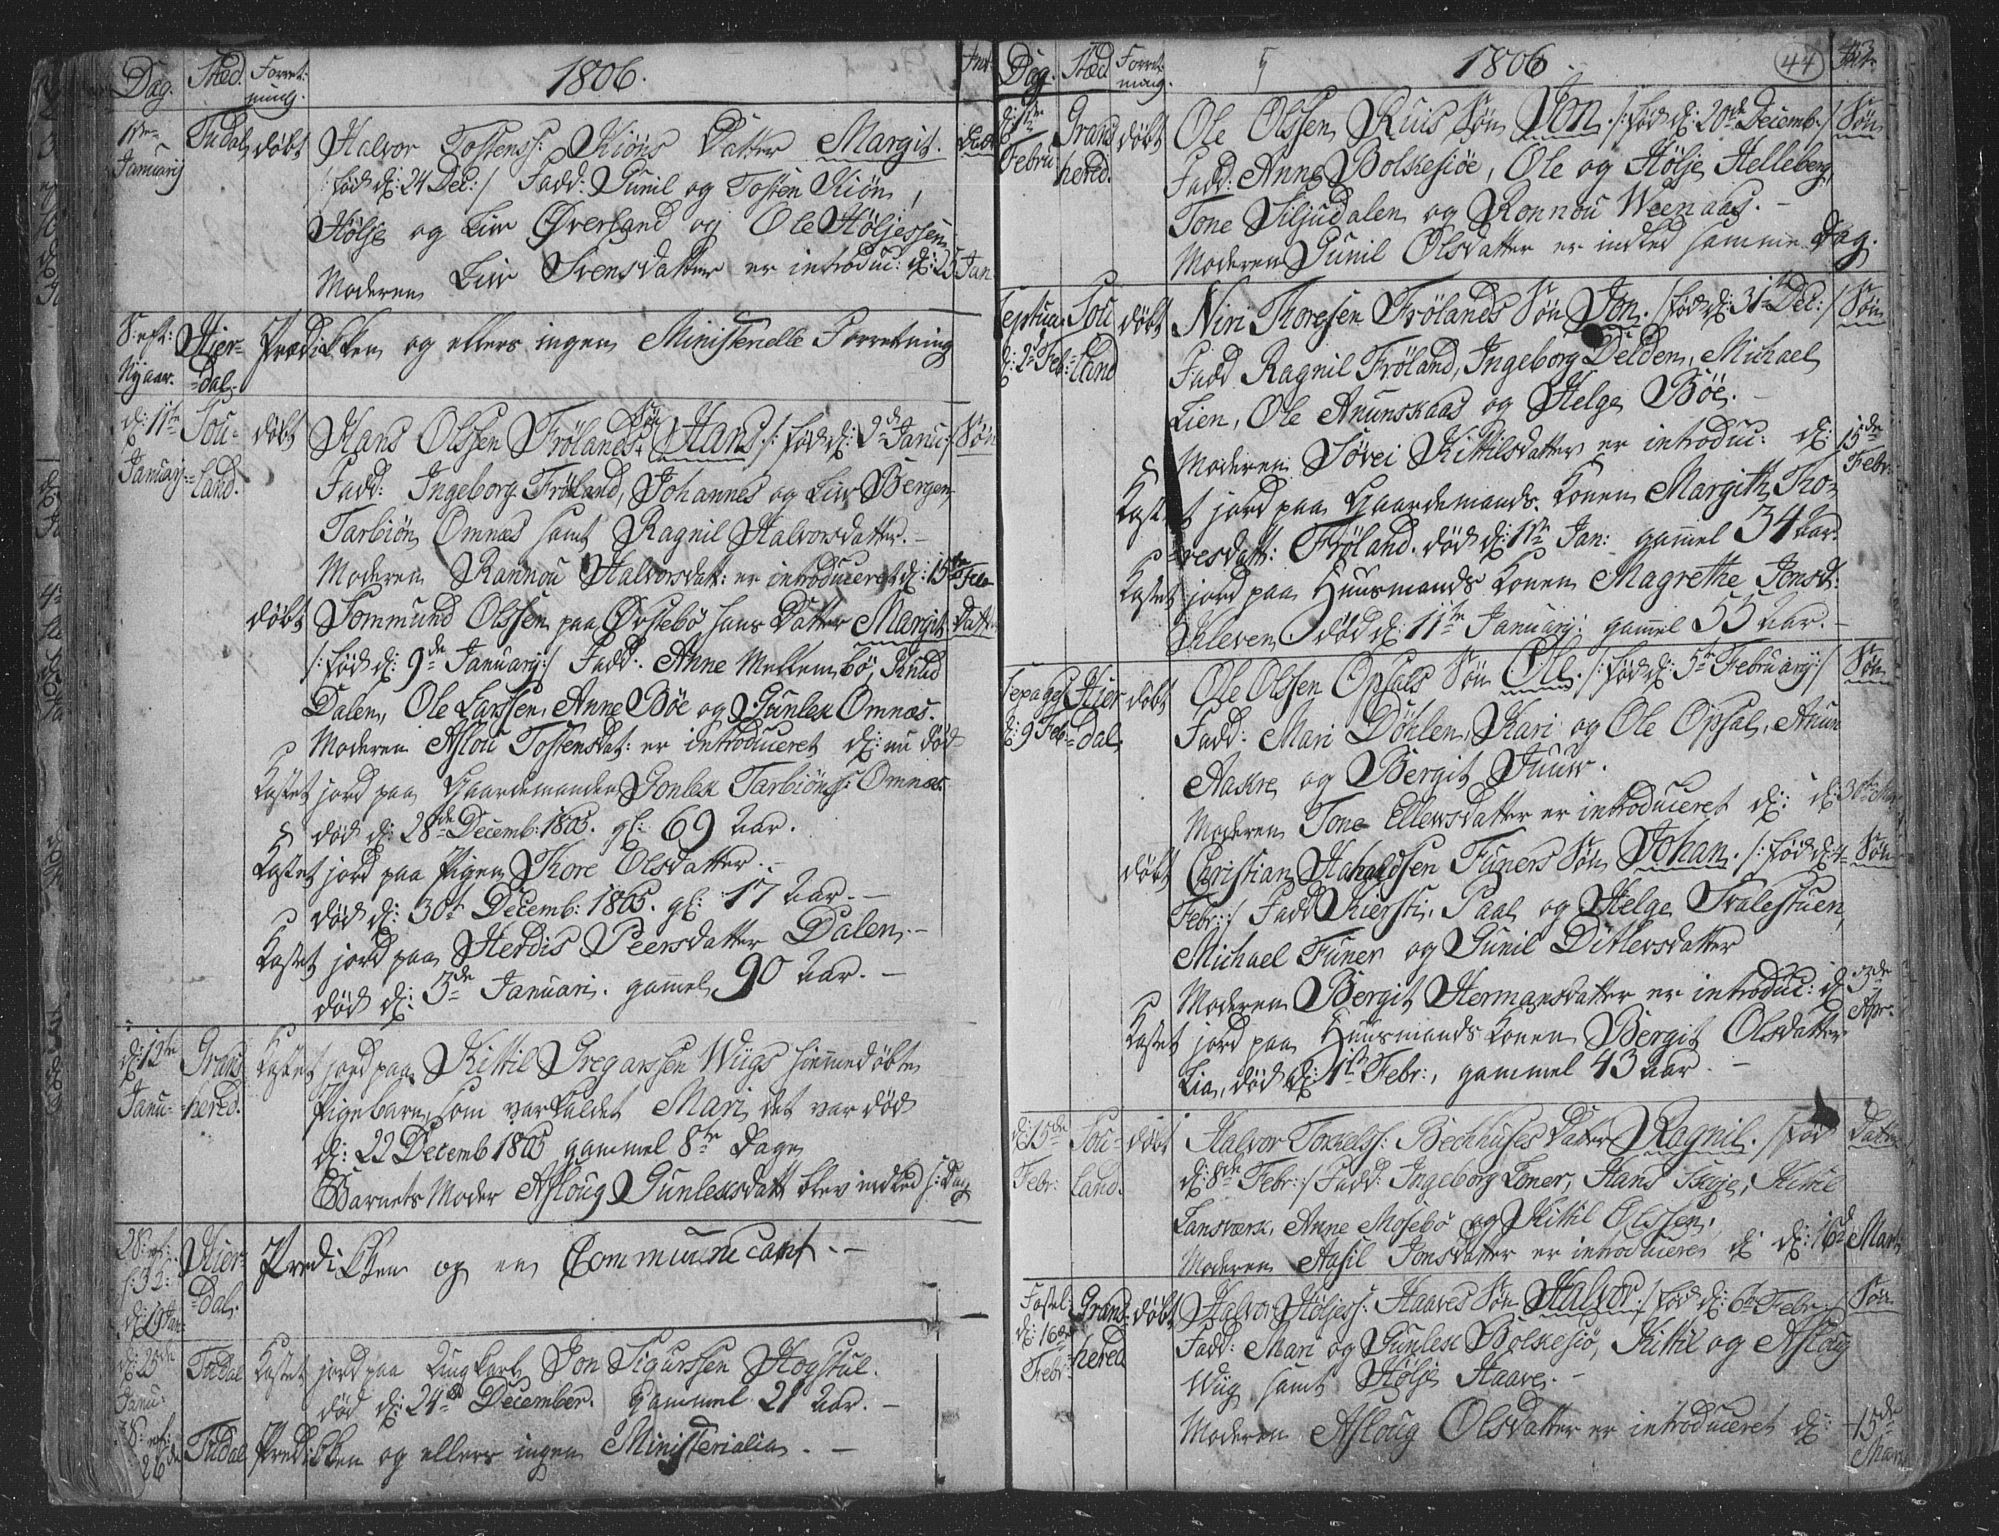 Dag. Sted. Forret:
ning.
1806.
1ste Januarij Tudal døbt Halvor Tostenss: Kiøns Datter Margit. Dat
/: født d: 24 Dec: / Fadd: Gunil og Tosten Kiøn,
Hølje og Liv Øverland og Ole Høljessen
Moderen Liv Svensdatter er introduc: d: 25 Jan
S: eft: Nyaar. Hier-dal. Prædikken og ellers ingen Ministerielle Forretning
d: 11te Januarij Sou-land. døbt Hans Olssen Frølands Søn Hans /: født d: 2d Janu: / Søn
Fadd: Ingeborg Frøland, Johannes og Liv Bergen,
Tarbiøn Omnæs samt Ragnil Halvorsdatter. -
Moderen Rannou Halvorsdat: er introduceret d: 15de Feb
døbt Sommund Olssen paa Ørsebø hans Datter Margit Datter
/: født d: 9de Januarij / Fadd: Anne Mellembø, Knud
Dalen, Ole Larssen, Anne Bøe og Gunlek Omnæs.
Moderen Aslou Tostensdat: er introduceret d: nu død
Kastet jord paa Gaardemanden Gonlek Tarbiønss: Omnæs
død d: 28de Decemb: 1805. gl: 69 Aar.
Kastet jord paa Pigen Thore Olsdatter. -
død d: 30te Decemb: 1805. gl: 17 Aar. -
Kastet jord paa Herdis Peersdatter Dalen. -
død d: 3de Januari. gammel 90 Aar. -
d: 12te Janu- Grans hered. Kastet jord paa Kittil Gregarssen Wiigs hiemmedøbte
Pigebarn, som var kaldet Mari, det var død
d: 22 Decemb 1805 gammel 8te Dage
Barnets Moder Asloug Gunleksdatt blev indled s: Dag
2 S: ef: d: 19 Jan Hier-dal. Prædikken og en Communicant. -
d: 25de Janu: Tudal Kastet jord paa Ungkarl Jon Sigurssen Hogstul.
død d: 24de December. Gammel 21 Aar. -
3 S: ef: 26de Tudal Prædikken og ellers ingen Ministerialia. -
Dag. Sted Forret:
ning.
1806. 44
d: 1ste Febru Grans hered. døbt Ole Olssen Ruis Søn Jon. /: født d: 20de Decemb: / Søn
Fadd: Anne Bolkesiøe, Ole og Hølje Helleberg,
Tone Siljudalen og Ronnou Weenaas. -
Moderen Gunil Olsdatter er indled samme Dag.
Septua d: 2 Feb: Sou land døbt Niri Thoresen Frølands Søn Jon. /: født d: 31te Dec: / Søn
Fadd Ragnil Frøland, Ingeborg Delden, Michael
Lien, Ole Anunskaas og Helge Bøe. -
Moderen Søvei Kittilsdatter er introduc: d: 15de Febr:
Kastet jord paa Gaardemands Konen Margith Tho
resdatt: Frøland. død d: 1ste Jan: gammel 34 Aar.
Kastet jord paa Huusmands Konen Magrethe Jonsd:
Kleven død d: 11te Januarij gammel 55 Aar. -
Sexages d: 9 Feb Hier-dal døbt Ole Olssen Opsals Søn Ole. /: født d: 5te Februarij / Søn
Fadd: Mari Døhlen, Kari og Ole Opsal, Anun
Aakre og Bergit Juuv.
Moderen Tone Ellevsdatter er introduceret d: 30te Mar
døbt Christian Haraldsen Funers Søn Johan. /: født d: 4 Søn
Febr: / Fadd Kiersti, Paal og Helge Tralestuen,
Michael Funer og Gunil Ditlevsdatter
Moderen Bergit Hermansdatter er introduc: d 3de Apr:
Kastet jord paa Huusmands Konen Bergit Olsdatter
Lia, død d: 1ste Febr:, gammel 43 Aar. -
d: 15de Febr: Sou-land. døbt Halvor Torkelss: Beckhuses Datter Ragnil. /: fød Datter
d: 8de Febr: / Fadd: Ingeborg Loner, Hans Skeje, Kittil
Lansværk, Anne Mosebø og Kittil Olssen.
Moderen Aasil Jonsdatter er introduceret d: 16d Mart:
Fastel: d: 16de Febr: Grans-hered døbt Halvor Høljess: Haaves Søn Halvor /: fød d: 6te Febr: / Søn
Fadd: Mari og Gunlek Bolkesiø, Kittil og Asloug
Wiig samt Hølje Haave. -
Moderen Asloug Olsdatter er introduceret d: 15de Marti